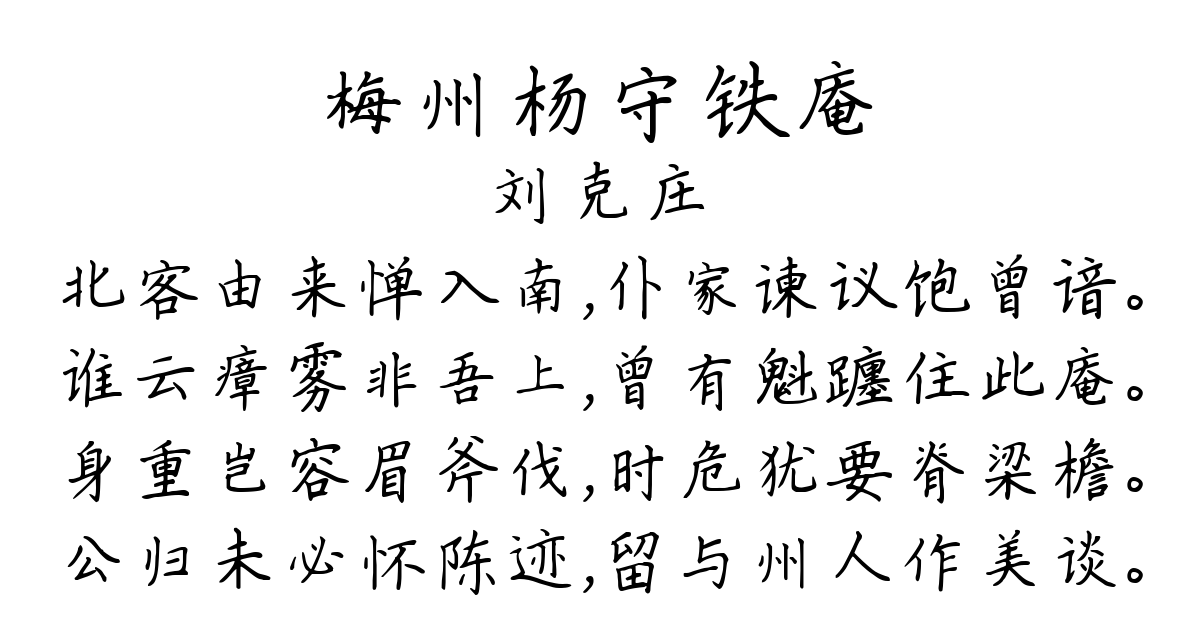 梅州杨守铁庵
刘克庄
北客由来惮入南,仆家谏议饱曾谙。
谁云瘴雾非吾上,曾有魁躔住此庵。
身重岂容眉斧伐,时危犹要脊梁檐。
公归未必怀陈迹,留与州人作美谈。